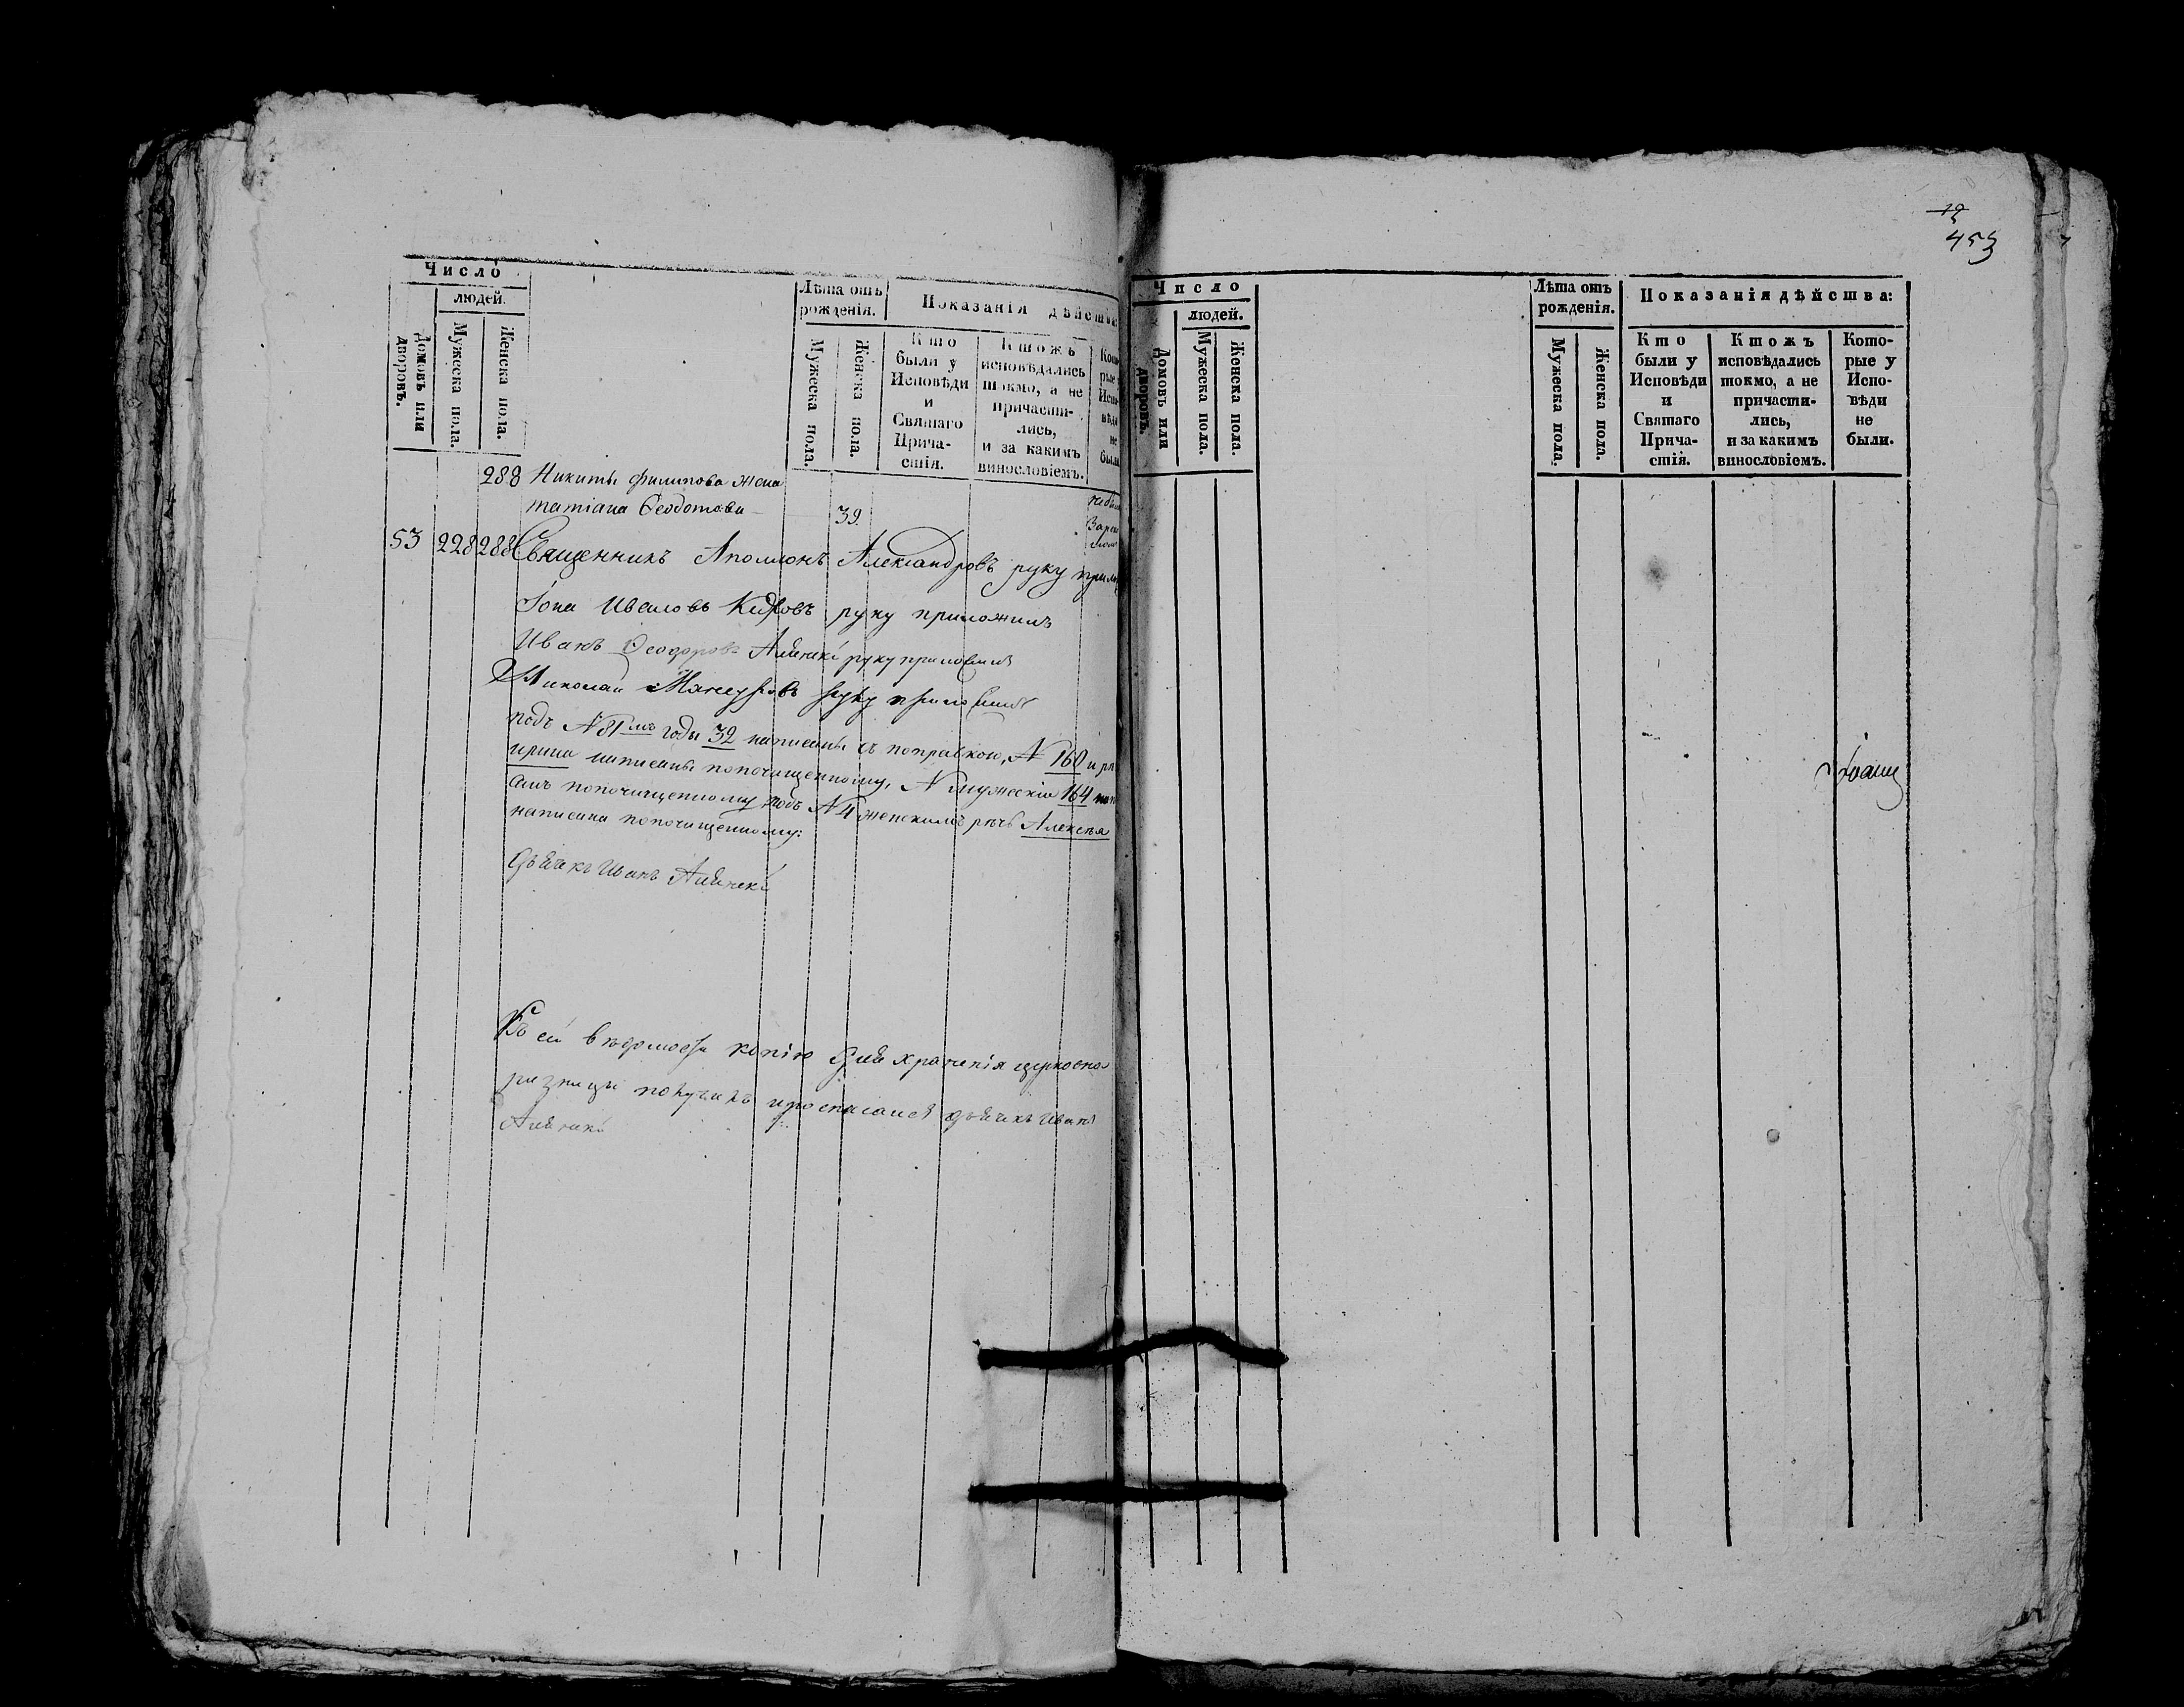 Число
людей.
Домовъ или дворовъ.
Мужеска пола.
Женска пола.
Лѣта отъ
рожденія.
Мужеска пола.
Женска пола.
Показанія дѣйства
Кто
были у
Исповѣди
и
Святаго
Прича-
стія.
Ктожъ
исповѣдались
токмо, а не
причасти-
лись,
и за какимъ
винословіемъ.
288 Никиты Филипова жена
татіана Ѳеодотова 39
53 228 288 Священникъ Аполлонъ Александровъ руку
Іона Ивановъ руку приложилъ
Иванъ Ѳеодоровъ руку приложилъ
Николай руку приложилъ
подъ N 81 годы 32 написаны съ поправкою, N 160
ирина написаны попочищенному, N мужескій 164
попочищенному подъ N 4 женскимъ рѣчь Алексѣя
написана попочищенному:
дьячекъ Иванъ
Къ сей вѣдомости копію для храненія
ризницы получилъ дьячекъ Иванъ
12
453
Число
людей.
Домовъ или дворовъ.
Мужеска пола.
Женска пола.
Лѣта отъ
рожденія.
Мужеска пола.
Женска пола.
Показанія дѣйства:
Кто
были у
Исповѣди
и
Святаго
Прича-
стія.
Ктожъ
исповѣдались
токмо, а не
причасти-
лись,
и за какимъ
винословіемъ.
Кото-
рые у
Испо-
вѣди
не
были.